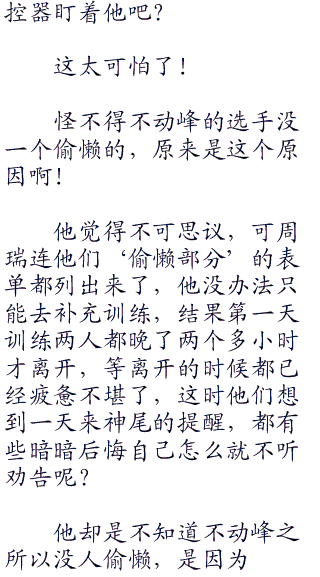 控器盯着他吧？
这太可怕了！
怪不得不动峰的选手没
一个偷懒的，原来是这个原
因啊！
他觉得不可思议，可周
瑞连他们‘偷懒部分’的表
单都列出来了，他没办法只
能去补充训练，结果第一天
训练两人都晚了两个多小时
才离开，等离开的时候都已
经疲惫不堪了，这时他们想
到一天来神尾的提醒，都有
些暗暗后悔自己怎么就不听
劝告呢？
他却是不知道不动峰之
所以没人偷懒，是因为